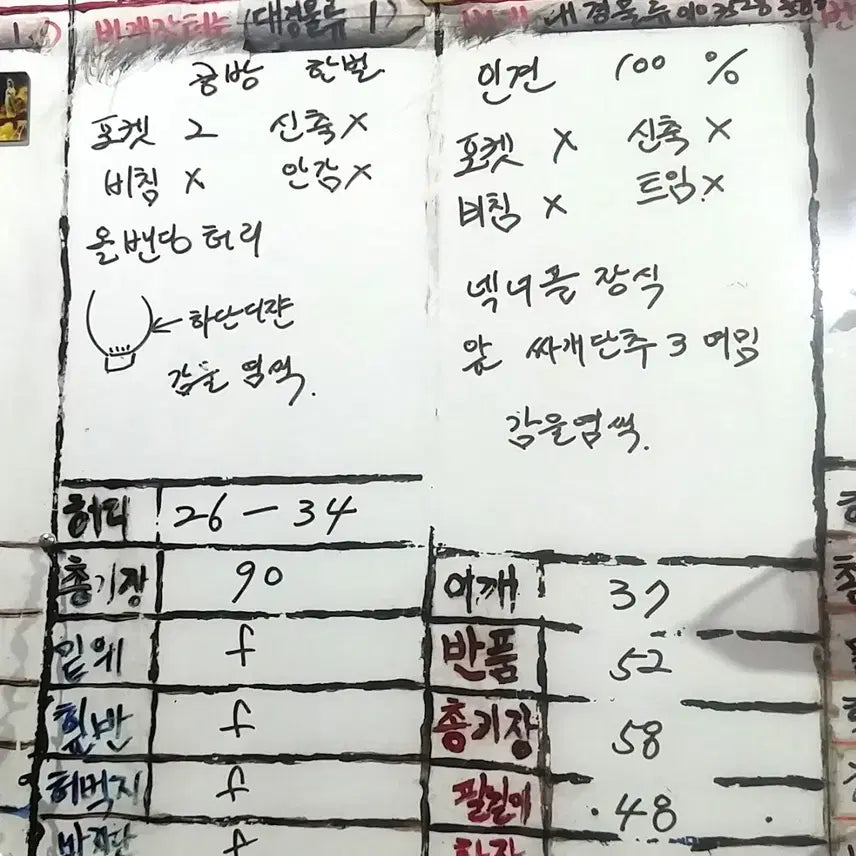 (대경물류 1)
공방 한벌
포켓 2 신축 X
비침 X 안감 X
올밴딩 허리
← 하단디쟌
감물 염색.
허리 26 - 34
총기장 90
밑위 f
힙반 f
허벅지 f
바지단 f
대경물류
인견 100 %
포켓 X 신축 X
비침 X 트임 X
넥 너플 장식
앞 싸개단추 3 여밈
감물염색.
어깨 37
반품 52
총기장 58
팔길이 48